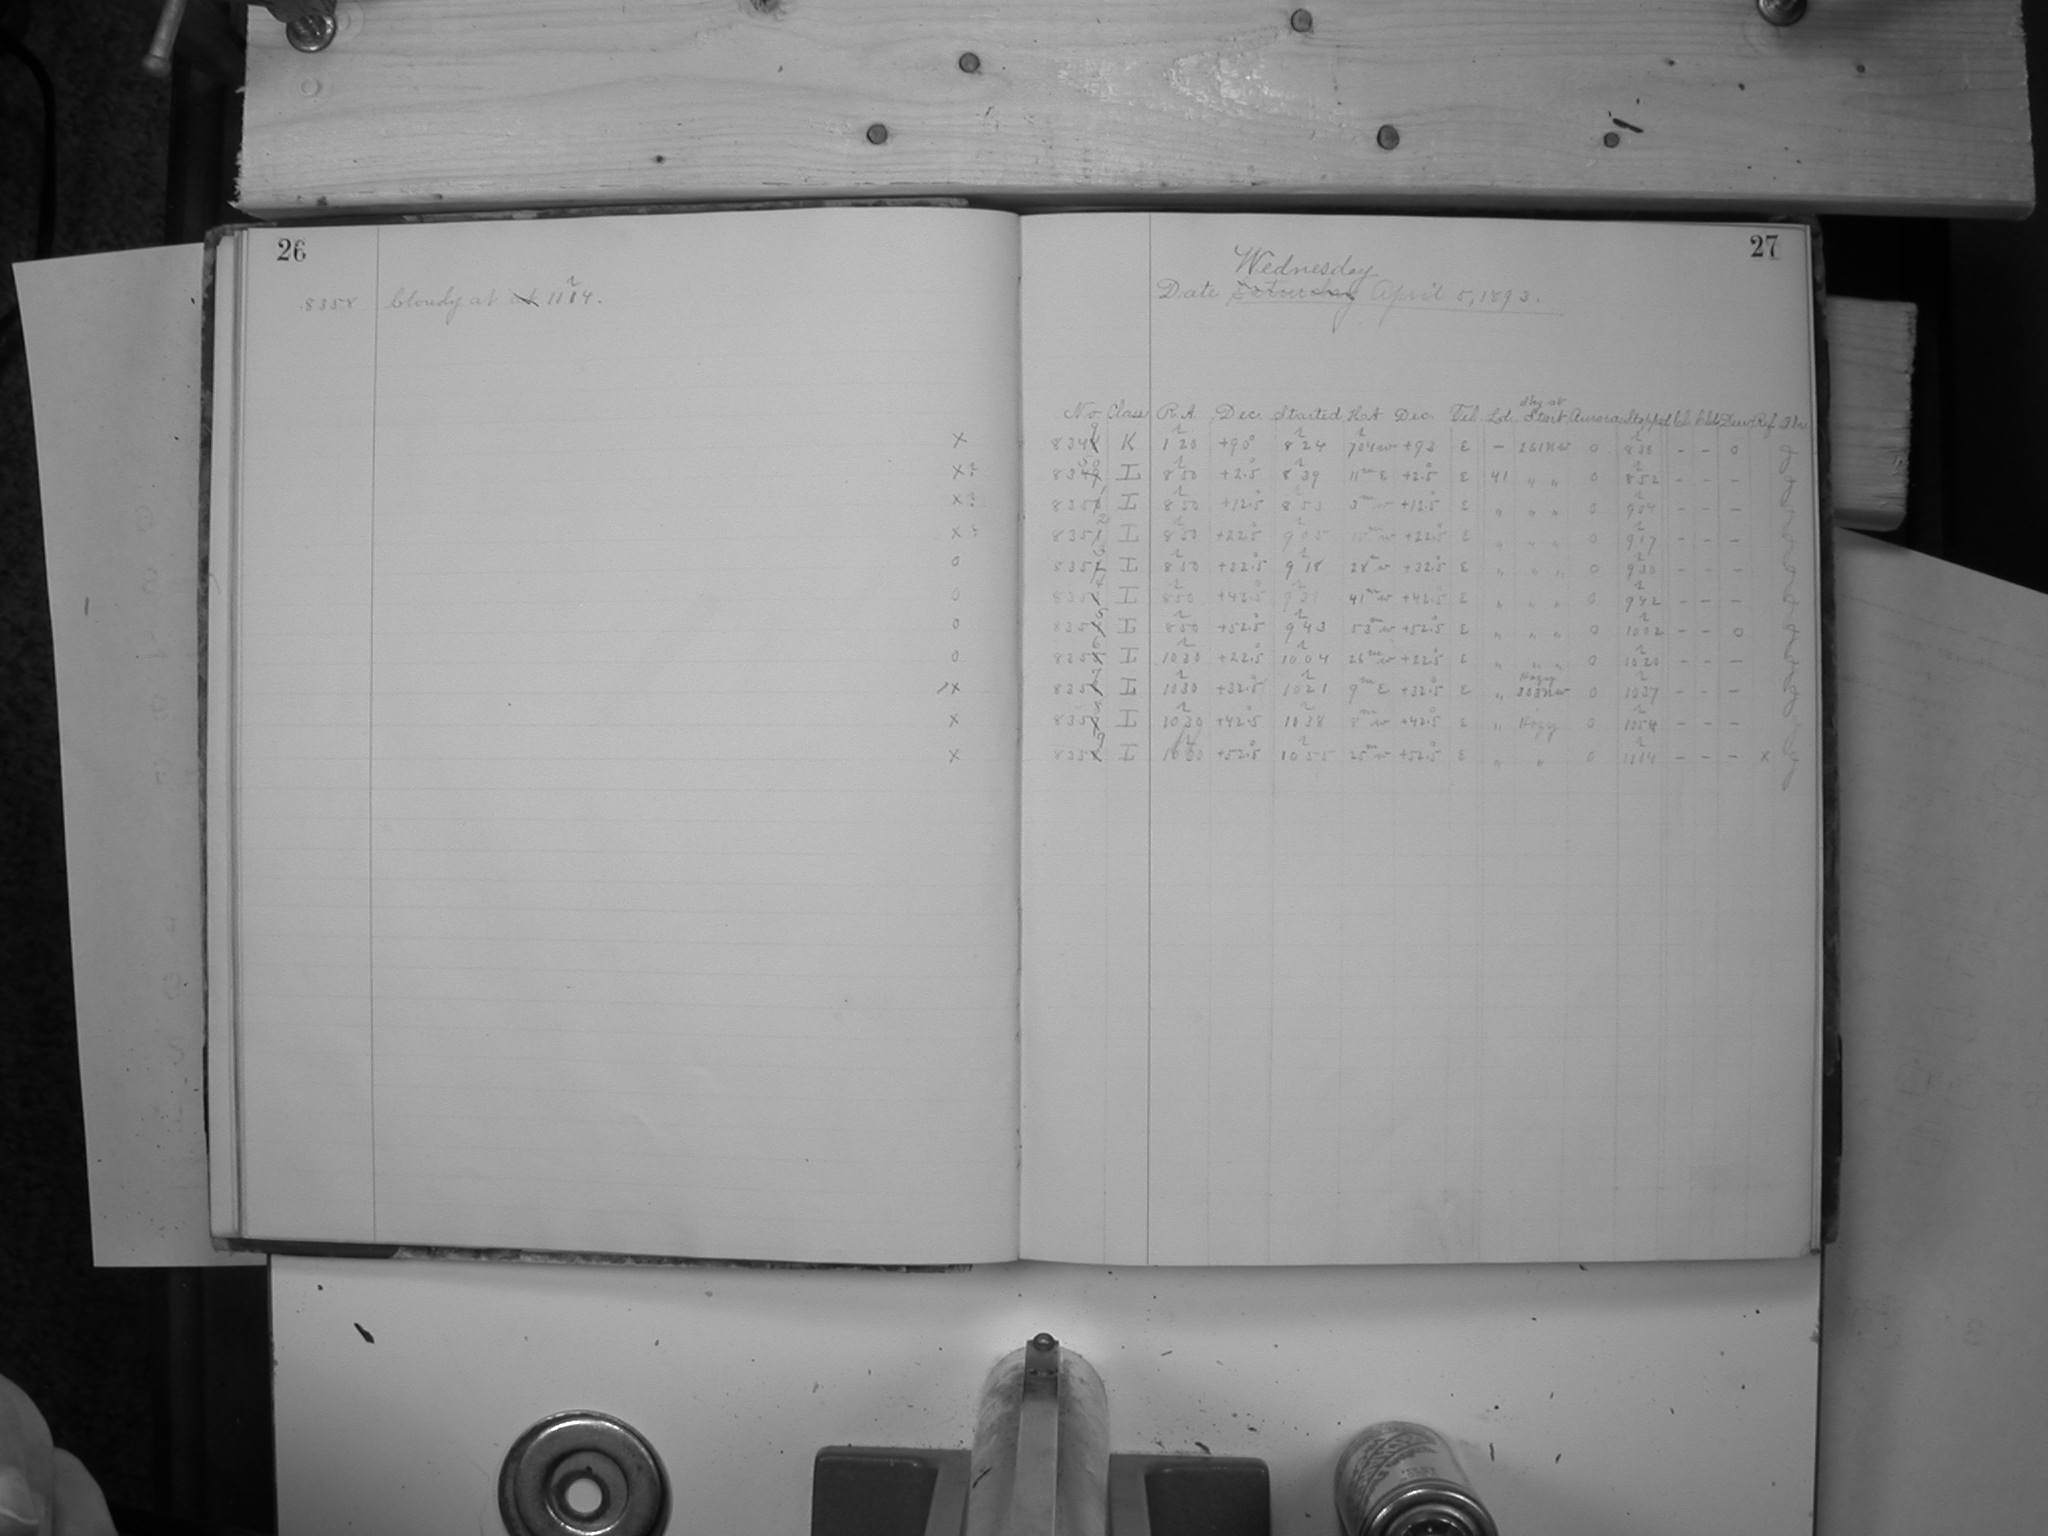 26
8358 Cloudy at at 11h14.
27
Wednesday
Date Saturday April 5, 1893.
No. Class R.A. Dec. Started H.A. Dec. Tel. Lot. Sky at Start Aurora Stopped Cl. Cld. Dew Ref. Obs.
x 8349 K 1h20 +90° 8h24 704w +93 E - 261NW 0 8h38 - - 0
x? 8350 I 8h50 +2.5 8h39 11m E +2.5 E 41 " " 0 8h52 - - -
x? 8351 I 8h50 +12.5 8h53 3m w +12.5 E " " " 0 9h04 - - -
x? 8352 I 8h50 +22.5 9h05 15m w +22.5 E " " " 0 9h17 - - -
0 8353 I 8h50 +32.5 9h18 28m w +32.5 E " " " 0 9h30 - - -
0 8354 I 8h50 +42.5 9h31 41m w +42.5 E " " " 0 9h42 - - -
0 8355 I 8h50 +52.5 9h43 53m w +52.5 E " " " 0 10h02 - - 0
0 8356 I 10h30 +22.5 10h04 26m w +22.5 E " " " 0 10h20 - - -
x 8357 I 10h30 +32.5 10h21 9m E +32.5 E " Hazy 303NW 0 10h37 - - -
x 8358 I 10h30 +42.5 10h38 8m w +42.5 E " Hazy 0 10h54 - - -
x 8359 I 10h30 +52.5 10h55 25m w +52.5 E " " 0 11h14 - - - x